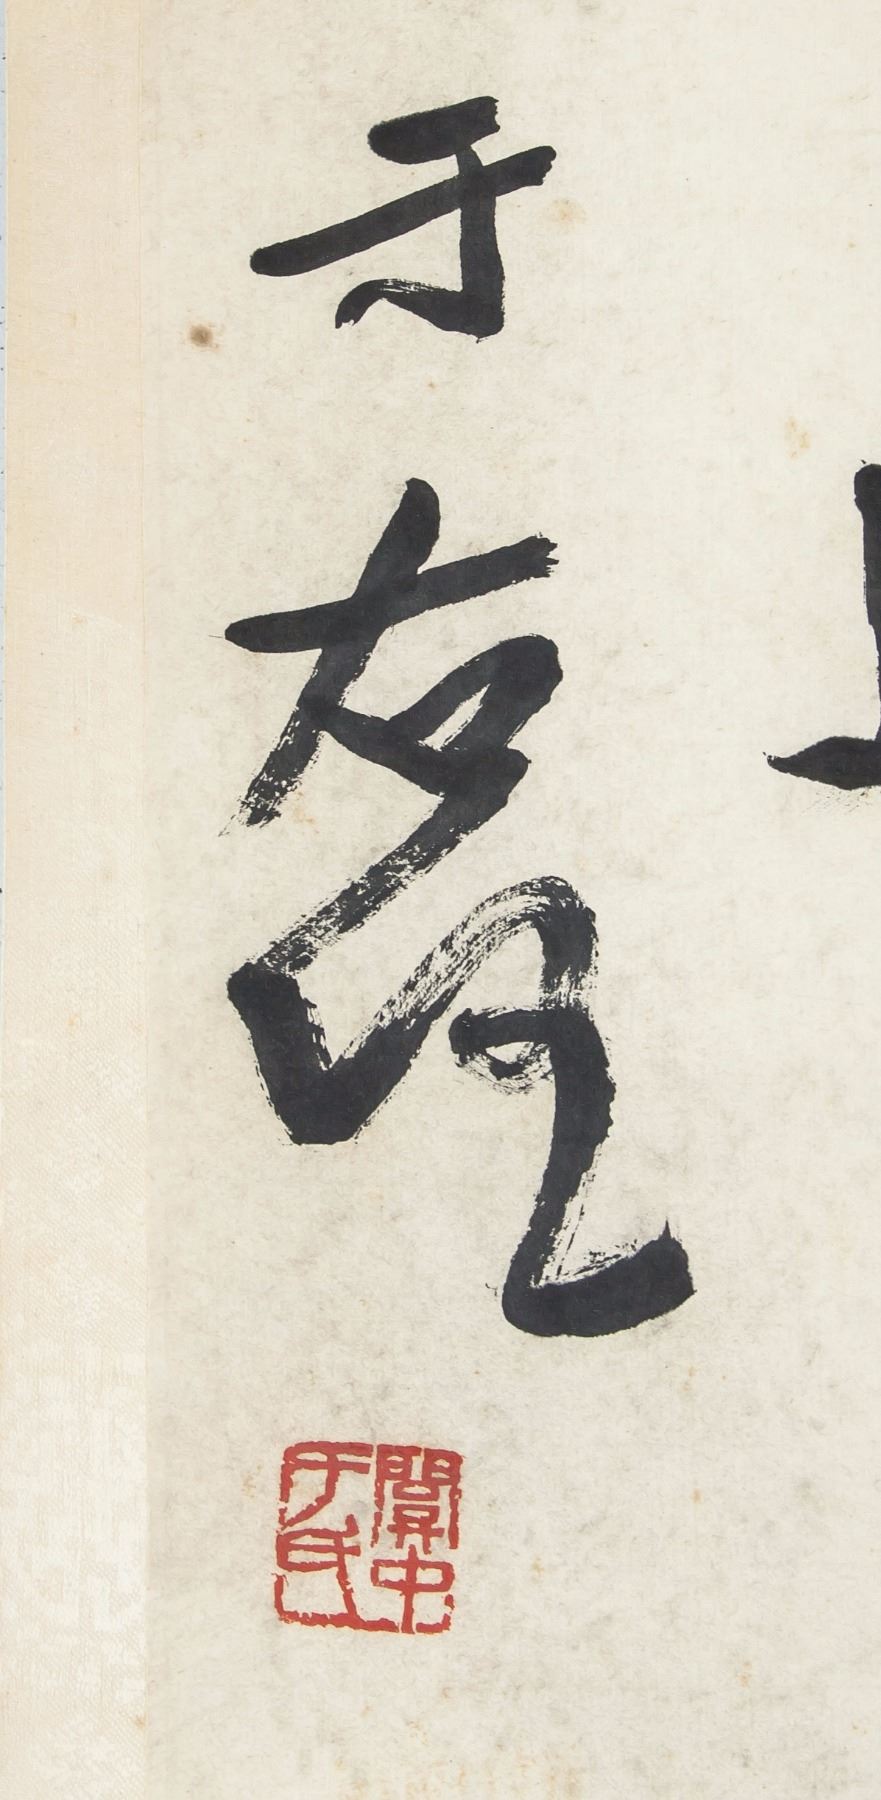 于右任
關中于氏